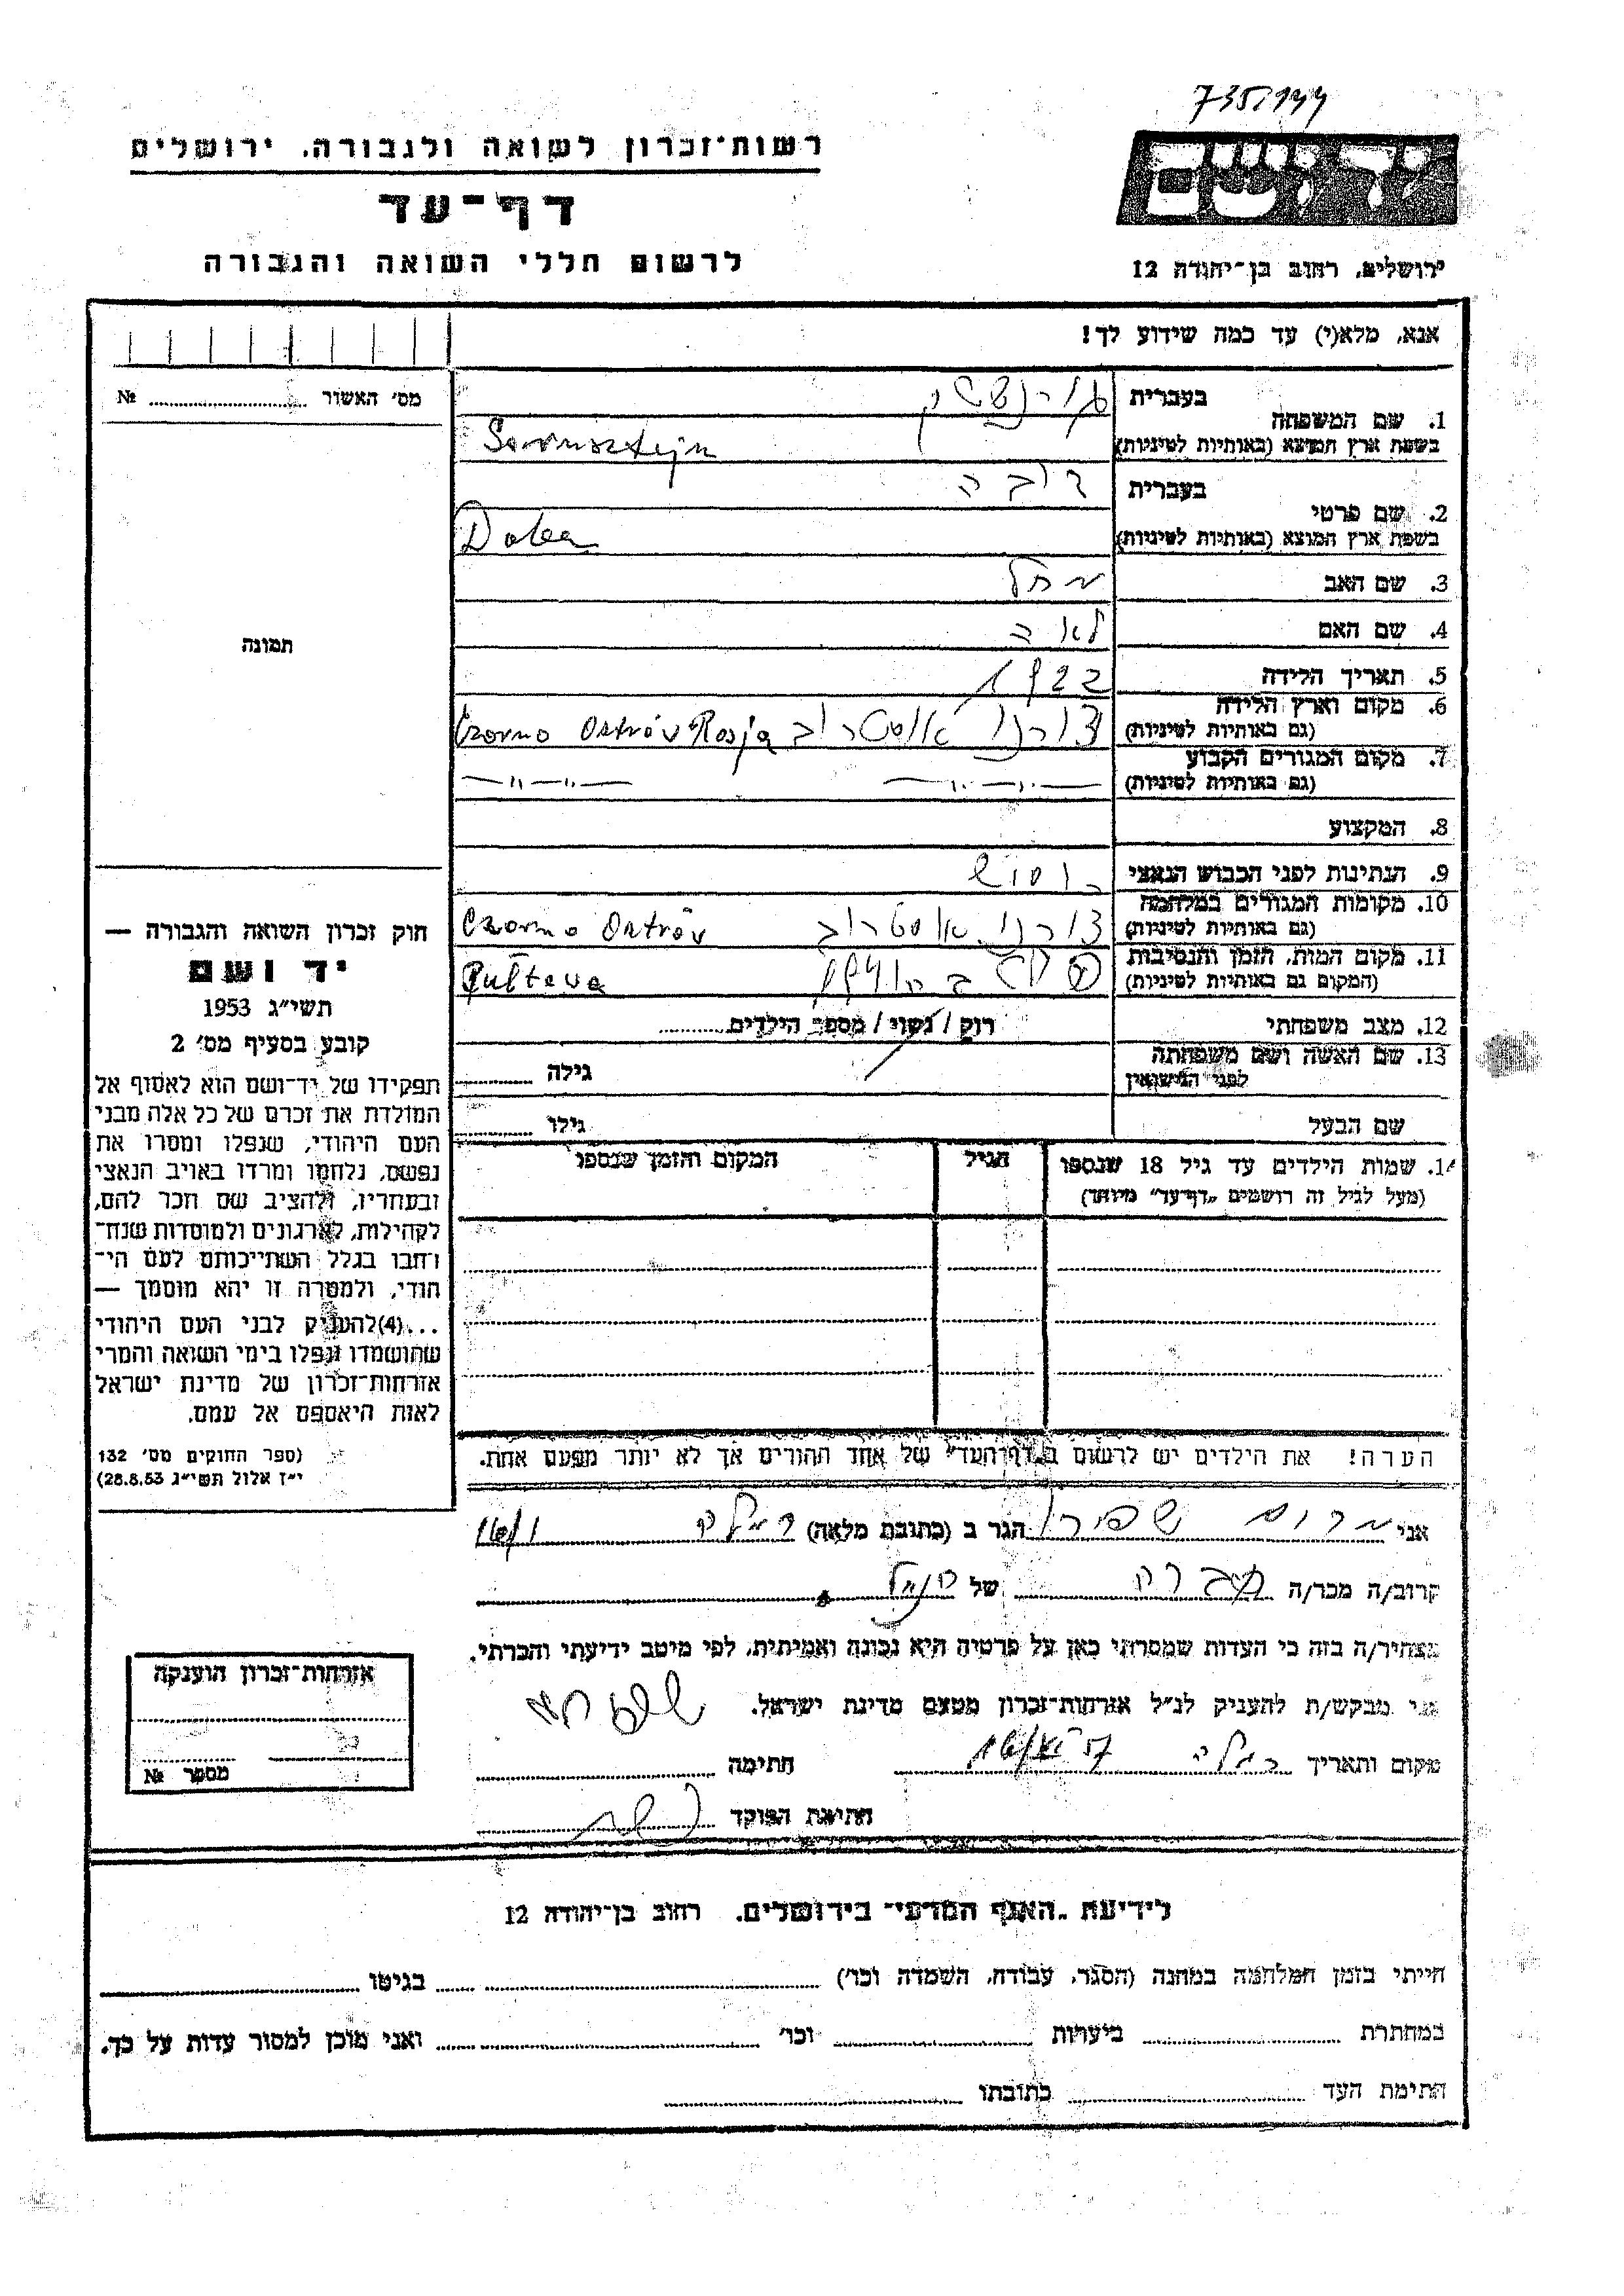 735/144
רשות־זכרון לשואה ולגבורה. ירושלים
יד ושם
דף־עד
לרשום חללי השואה והגבורה
ירושלים, רחוב בן־יהודה 12
אנא, מלא(י) עד כמה שידוע לך!
מס' האשור № 
1. שם המשפחה
בעברית
בשפת ארץ המוצא (באותיות לטיניות) Sornsztejn
2. שם פרטי
בעברית דובה
בשפת ארץ המוצא (באותיות לטיניות) Doba
3. שם האב
4. שם האם לאה
5. תאריך הלידה 1922
6. מקום וארץ הלידה
(גם באותיות לטיניות) צורנו אוסטרוב Czorno Ostróv Rosja
7. מקום המגורים הקבוע
(גם באותיות לטיניות) —"— —"—
8. המקצוע
9. הנתינות לפני הכבוש הנאצי
10. מקומות המגורים במלחמה
(גם באותיות לטיניות) צורנו אוסטרוב Czorno Ostróv
11. מקום המות, הזמן והנסיבות
(המקום גם באותיות לטיניות) 1941 Pułtava
12. מצב משפחתי רוק / נשוי / מספר הילדים
13. שם האשה ושם משפחתה
לפני הנישואין גילה
שם הבעל גילו
14. שמות הילדים עד גיל 18 שנספו הגיל המקום והזמן שנספו
(מעל לגיל זה רושמים „דף־עד" מיוחד)
הערה! את הילדים יש לרשום ב„דף־העד" של אחד ההורים אך לא יותר מפעם אחת.
תמונה
חוק זכרון השואה והגבורה —
יד ושם
תשי"ג 1953
קובע בסעיף מס' 2
תפקידו של יד־ושם הוא לאסוף אל
המולדת את זכרם של כל אלה מבני
העם היהודי, שנפלו ומסרו את
נפשם, נלחמו ומרדו באויב הנאצי
ובעוזריו, ולהציב שם וזכר להם,
לקהילות, לארגונים ולמוסדות שנח־
רבו בגלל השתייכותם לעם הי־
הודי, ולמטרה זו יהא מוסמך —
...(4)להעניק לבני העם היהודי
שהושמדו ונפלו בימי השואה והמרי
אזרחות־זכרון של מדינת ישראל
לאות היאספם אל עמם.
(ספר החוקים מס' 132
י"ז אלול תשי"ג 28.8.53)
אני שפירו הגר ב (כתובת מלאה) רמלה
קרוב/ה מכר/ה של
מצהיר/ה בזה כי העדות שמסרתי כאן על פרטיה היא נכונה ואמיתית, לפי מיטב ידיעתי והכרתי.
אני מבקש/ת להעניק לנ"ל אזרחות־זכרון מטעם מדינת ישראל.
מקום ותאריך רמלה חתימה
חתימת הפוקד
אזרחות־זכרון הוענקה
מספר №
לידיעת „האגף המדעי" בירושלים. רחוב בן־יהודה 12
הייתי בזמן המלחמה במחנה (הסגר, עבודה, השמדה וכו') בגיטו
במחתרת ביערות וכו' ואני מוכן למסור עדות על כך.
חתימת העד כתובתו